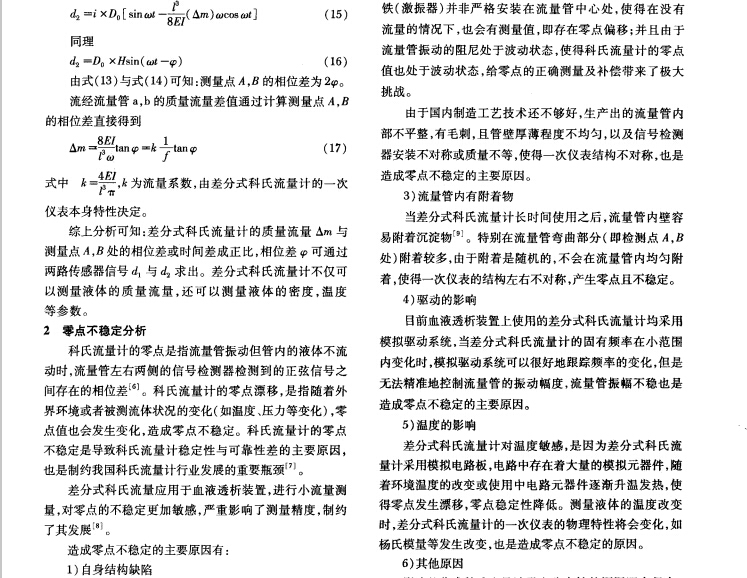 d₂ =i ×D₀[ sin ωt − l³/8EI (Δm)ωcos ωt]  (15)
同理
d₂ =D₀ ×Hsin( ωt −φ)  (16)
由式(13)与式(14)可知:测量点 A,B 的相位差为 2φ。
流经流量管 a,b 的质量流量差值通过计算测量点 A,B
的相位差直接得到
Δm = 8EI/l³ω tan φ =k 1/f tan φ  (17)
式中 k = 4EI/l³π ,k 为流量系数,由差分式科氏流量计的一次
仪表本身特性决定。
综上分析可知:差分式科氏流量计的质量流量 Δm 与
测量点 A,B 处的相位差或时间差成正比,相位差 φ 可通过
两路传感器信号 d₁ 与 d₂ 求出。差分式科氏流量计不仅可
以测量液体的质量流量,还可以测量液体的密度,温度
等参数。
2 零点不稳定分析
科氏流量计的零点是指流量管振动但管内的液体不流
动时,流量管左右两侧的信号检测器检测到的正弦信号之
间存在的相位差[6]。科氏流量计的零点漂移,是指随着外
界环境或者被测流体状况的变化(如温度、压力等变化),零
点值也会发生变化,造成零点不稳定。科氏流量计的零点
不稳定是导致科氏流量计稳定性与可靠性差的主要原因,
也是制约我国科氏流量计行业发展的重要瓶颈[7]。
差分式科氏流量应用于血液透析装置,进行小流量测
量,对零点的不稳定更加敏感,严重影响了测量精度,制约
了其发展[8]。
造成零点不稳定的主要原因有:
1)自身结构缺陷
铁(激振器)并非严格安装在流量管中心处,使得在没有
流量的情况下,也会有测量值,即存在零点偏移;并且由于
流量管振动的阻尼处于波动状态,使得科氏流量计的零点
值也处于波动状态,给零点的正确测量及补偿带来了极大
挑战。
由于国内制造工艺技术还不够好,生产出的流量管内
部不平整,有毛刺,且管壁厚薄程度不均匀,以及信号检测
器安装不对称或质量不等,使得一次仪表结构不对称,也是
造成零点不稳定的主要原因。
3)流量管内有附着物
当差分式科氏流量计长时间使用之后,流量管内壁容
易附着沉淀物[9]。特别在流量管弯曲部分(即检测点 A,B
处)附着较多,由于附着是随机的,不会在流量管内均匀附
着,使得一次仪表的结构左右不对称,产生零点且不稳定。
4)驱动的影响
目前血液透析装置上使用的差分式科氏流量计均采用
模拟驱动系统,当差分式科氏流量计的固有频率在小范围
内变化时,模拟驱动系统可以很好地跟踪频率的变化,但是
无法精准地控制流量管的振动幅度,流量管振幅不稳也是
造成零点不稳定的主要原因。
5)温度的影响
差分式科氏流量计对温度敏感,是因为差分式科氏流
量计采用模拟电路板,电路中存在着大量的模拟元器件,随
着环境温度的改变或使用中电路元器件逐渐升温发热,使
得零点发生漂移,零点稳定性降低。测量液体的温度改变
时,差分式科氏流量计的一次仪表的物理特性将会变化,如
杨氏模量等发生改变,也是造成零点不稳定的原因。
6)其他原因